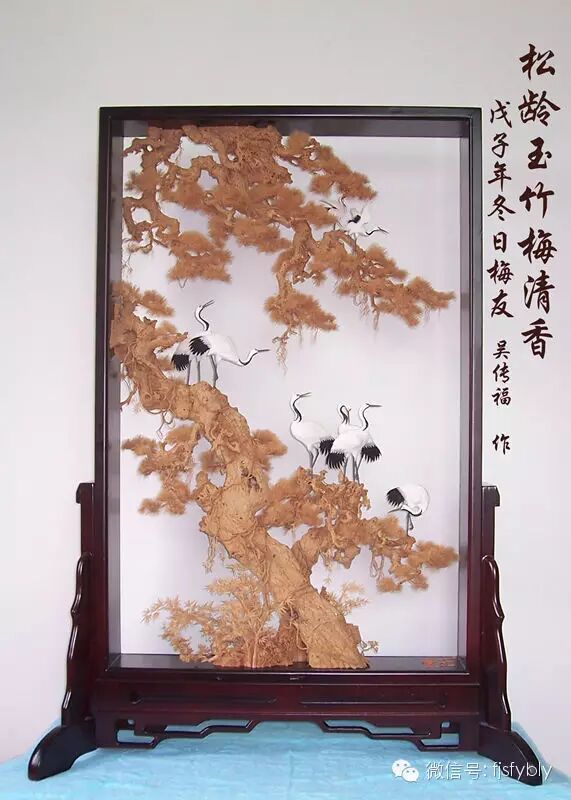 松龄玉竹梅清香
戊子年冬日梅友 吴传福 作
微信号: fjsfybly